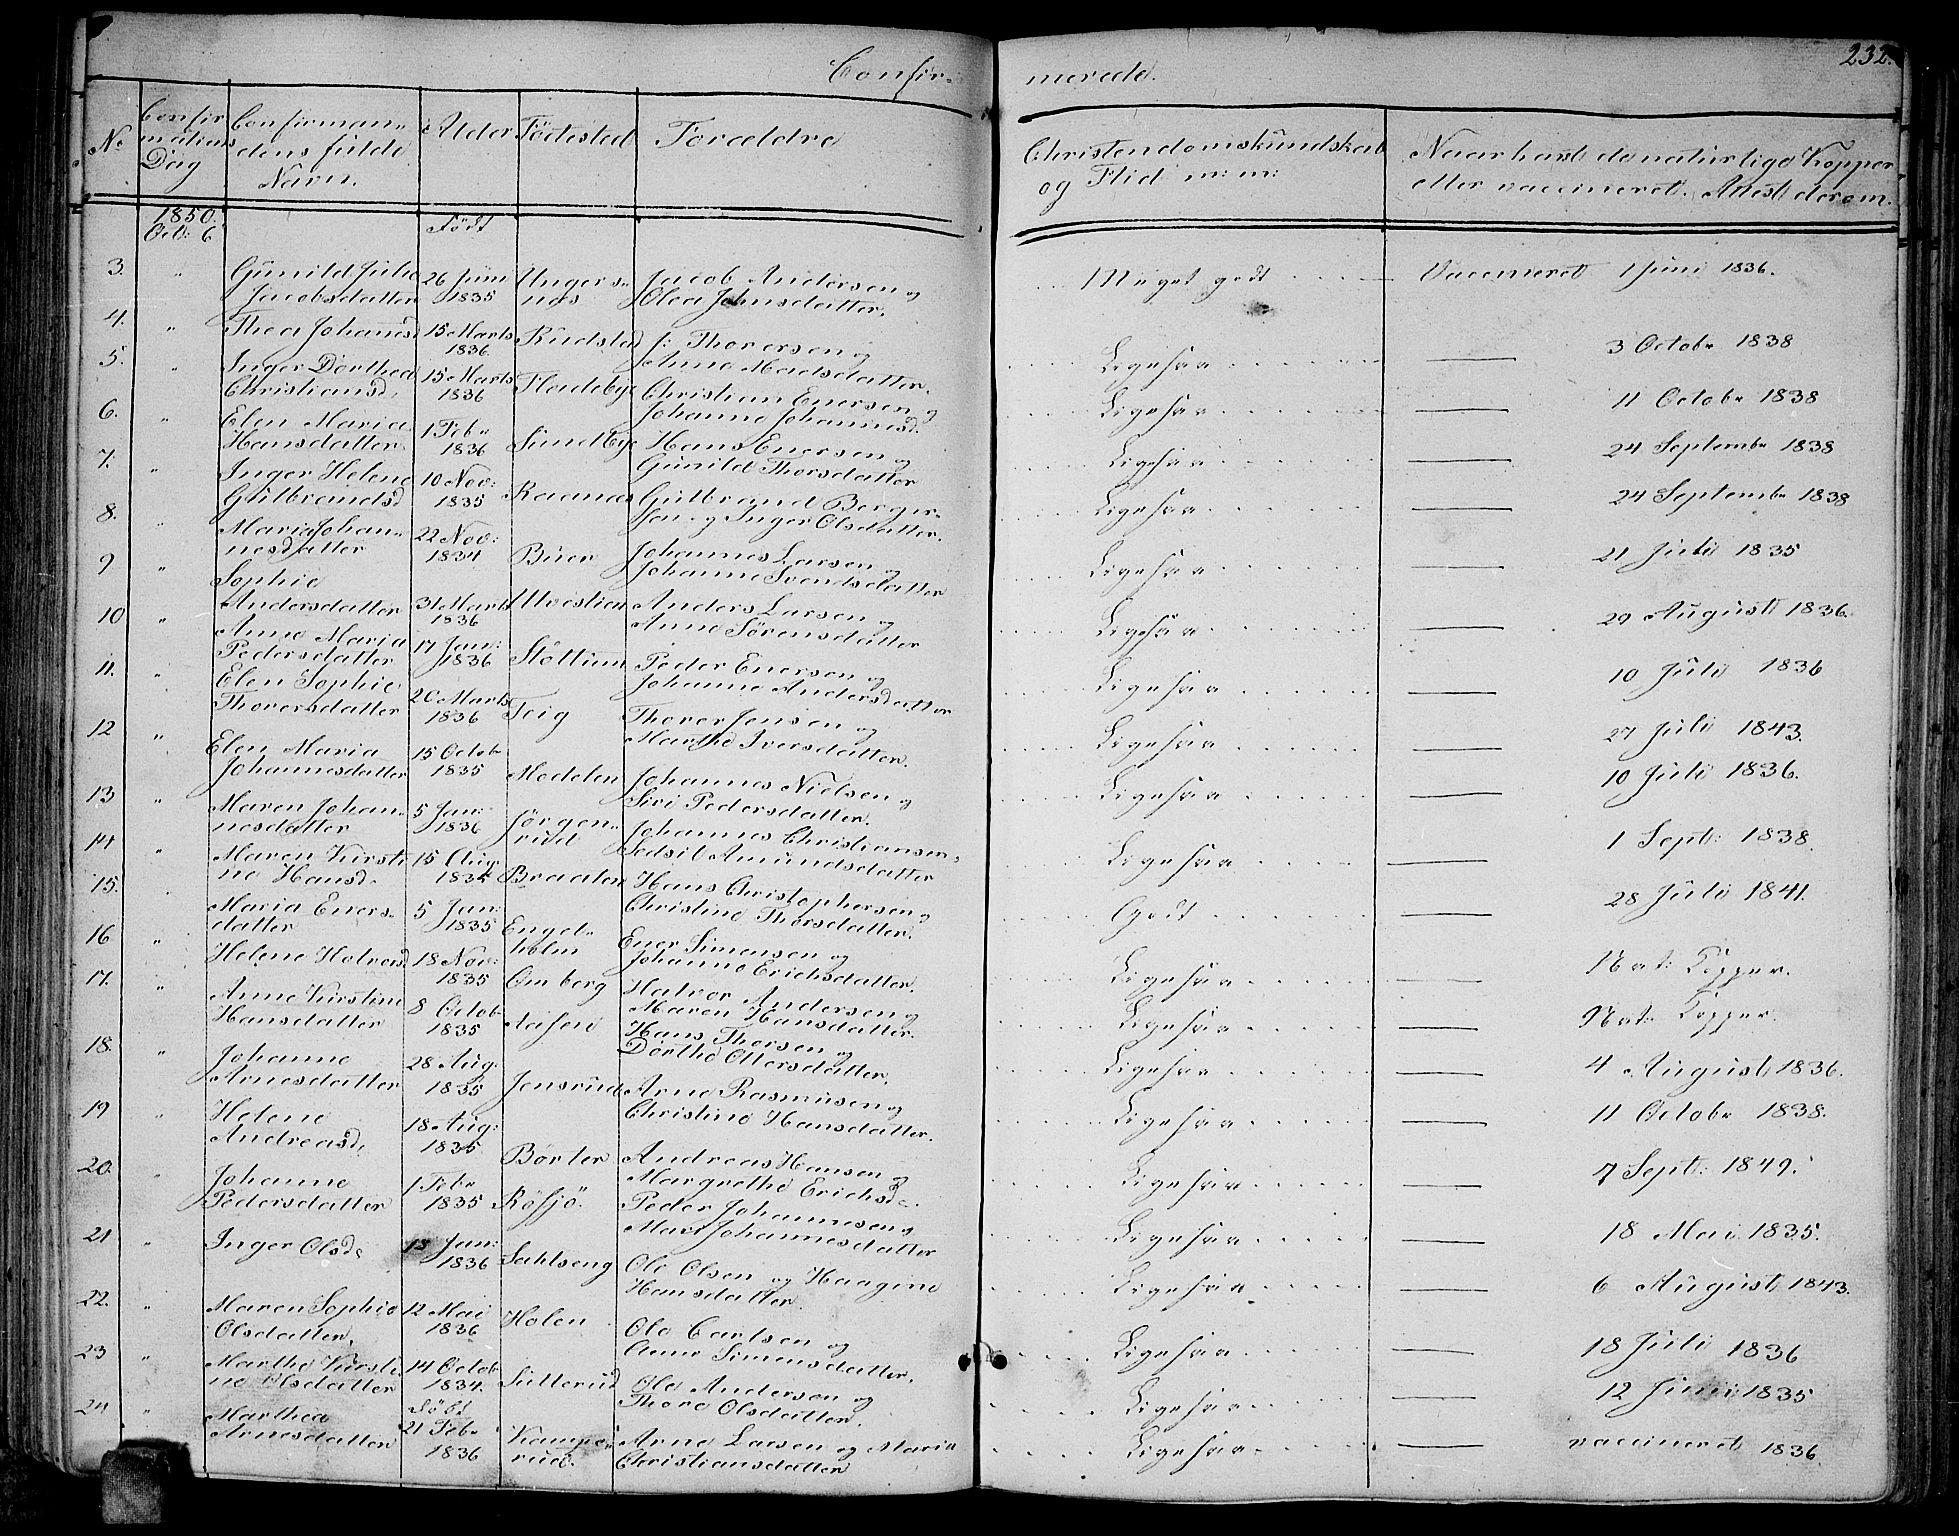 232.
Confir-
merede.
No
Confir
mations
Dag
Confirman-
dens fulde
Navn.
Alder
Födested
Forældre
Christendomskundskab
og Flid m: m:
Naar havt de naturlige Kopper
eller vaccineret. Attest derom.
1850.
Octb: 6
Födt
3. " Gunild Julie Jacobsdatter 26 Juni 1835 Ungers-næs Jacob Andersen og Olea Johnsdatter. Meget godt Vaccineret 1 Juni 1836.
4. " Thea Johannsd 15 Marts 1836. Rudsted J: Thoresen og Anne Madsdatter. Ligesaa 3 Octobr 1838
5. " Inger Dorthea Christiansd, 15 Marts 1836 Fladebye Christian Enersen og Johanne Johannesd. Ligesaa 11 Octobr 1838
6. " Elen Maria Hansdatter 1 Febr 1836 Sundbye Hans Enersen og Gunild Thorsdatter Ligesaa 24 Septembr 1838
7. " Inger Helene Gulbrandsd 10 Nov: 1835 Raanas Gulbrand Berger-sen og Inger Olsdatter. Ligesaa 24 Septembr 1838
8. " Maria Johan-nesdatter 22 Nov: 1834 Buer Johannes Larsen og Johanne Svendsdatter Ligesaa 21 Juli 1835
9 " Sophie Andersdatter 31 Marts 1836 Ulvestien Anders Larsen og Anne Sörensdatter Ligesaa 29 August 1836.
10 " Anne Maria Pedersdatter 17 Jan: 1836 Stöttum Peder Enersen og Johanne Andersdatter Ligesaa 10 Juli 1836
11. " Elen Sophie Thorersdatter 20 Marts 1836 Teig Thorer Jensen og Marthe Iversdatter. Ligesaa 27 Juli 1843.
12 " Elen Maria Johannesdatter 15 Octobr 1835 Modelen Johannes Nielsen og Siri Pedersdatter. Ligesaa 10 Juli 1836.
13 " Maren Johan-nesdatter 5 Jan: 1836 Jörgen-rud Johannes Christiansen Sidsil Amundsdatter Ligesaa 1 Sept: 1838.
14 " Maren Kirsti-ne Hansd. 15 Aug. 1834 Braaten Hans Christophersen og Christine Thorsdatter. Godt 28 Juli 1841.
15. Maria Eners-datter 5 Jan: 1835 Engel-holm Ener Simensen og Johanne Erichsdatter. Ligesaa Nat: Kopper.
16 " Helene Halvorsd 18 Nov: 1835 Omberg Halvor Andersen og Maren Hansdatter. Ligesaa Nat: Kopper.
17. " Anne Kirstine Hansdatter 8 Octobr 1835 Aasen Hans Thorsen og Dorthe Ottersdatter. Ligesaa 4 August 1836.
18. " Johanne Arnesdatter 28 Aug: 1835 Jensrud Arne Rasmusen og Christine Hansdatter. Ligesaa 11 Octobr 1838.
19 " Helene Andreasd, 18 Aug: 1835 Börter Andreas Hansen og Margrethe Erichsd. Ligesaa 7 Sept: 1849.
20. " Johanne Pedersdatter 1 Febr 1835 Rösjö. Peder Johannesen og Mari Johannesdatter Ligesaa 18 Mai 1835.
21 " Inger Olsd. 13 Jan: 1836 Sahlseng Ole Olsen og Haagine Hansdatter. Ligesaa 6 August 1843.
22. " Maren Sophie Olsdatter. 12 Mai 1836 Holen Ole Carlsen og Anne Simensdatter. Ligesaa 18 Juli 1836
23 " Marthe Kirsti-ne Olsdatter 14 Octobr 1834. Sutterud Ole Andersen og Thore Olsdatter. Ligesaa 12 Juni 1835
24 " Marthea Arnesdatter Döbt 21 Febr 1836 Kampe-rud. Arne Larsen og Maria Christiansdatter Ligesaa vaccineret 1836